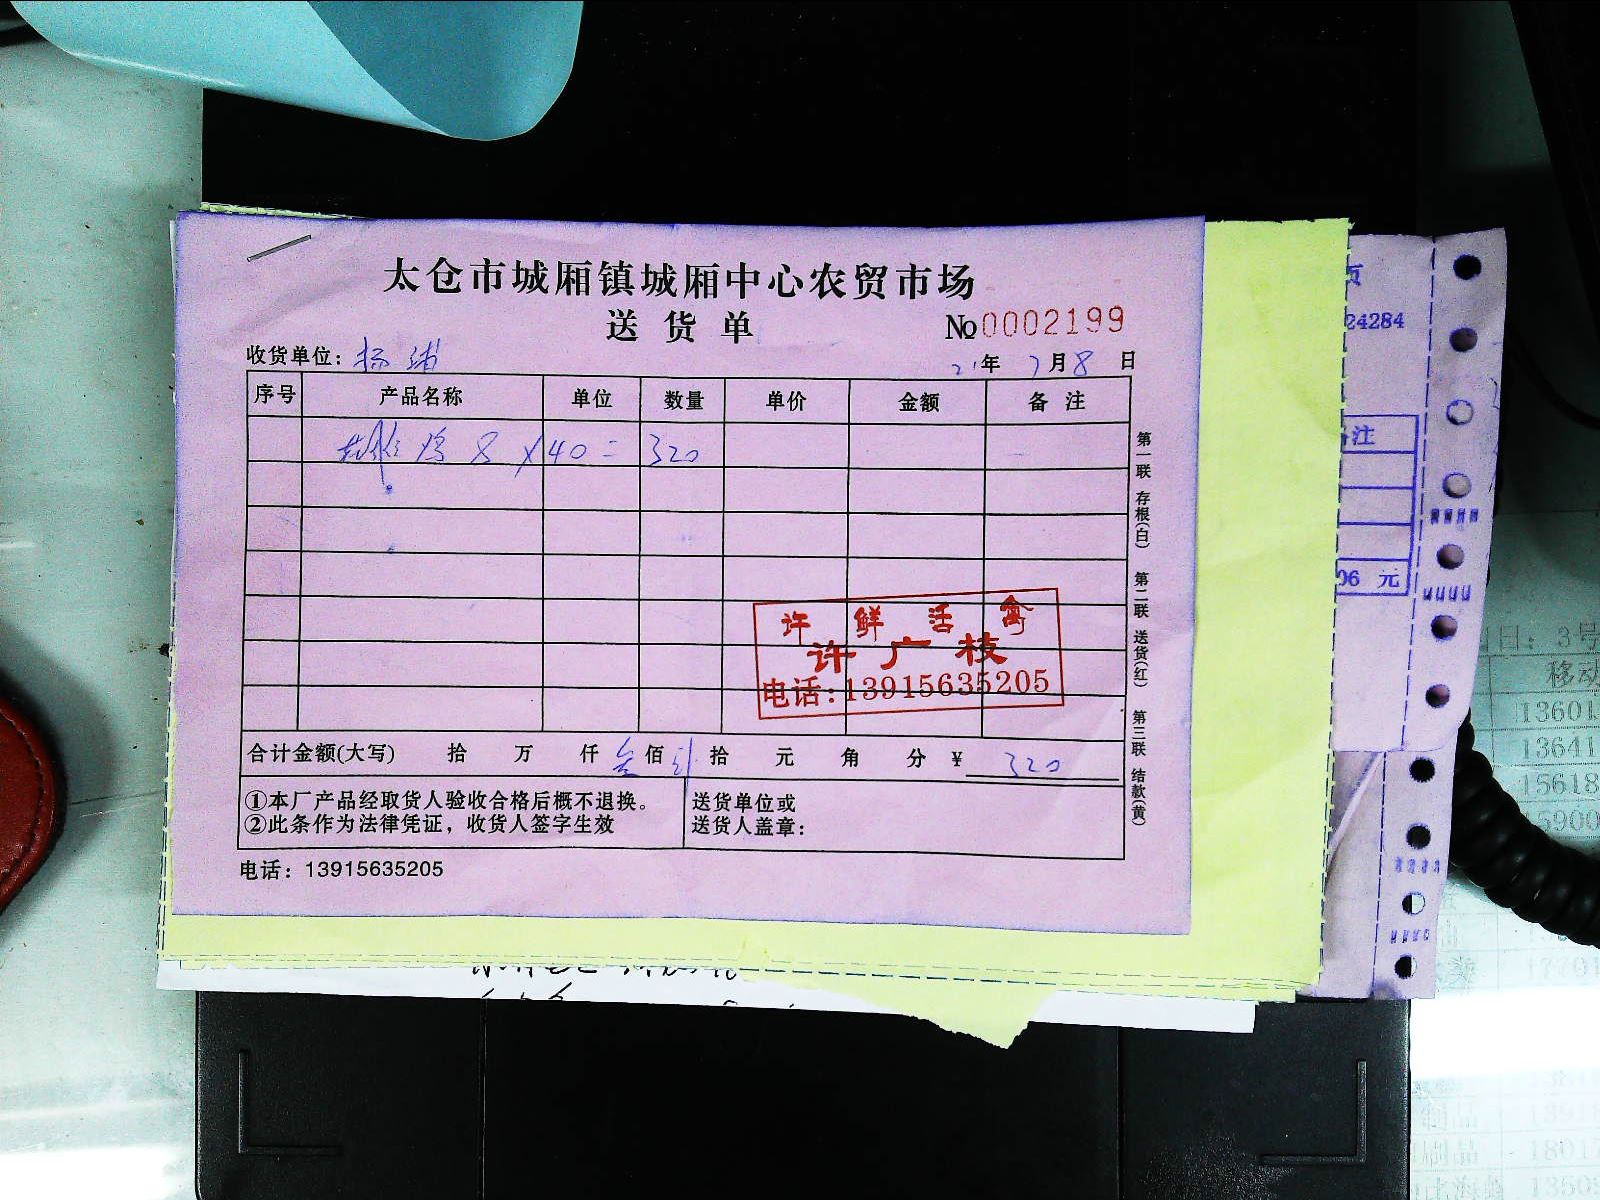 太仓市城厢镇城厢中心农贸市场
送货单 №0002199
收货单位：杨浦 21年 7月8日
序号 产品名称 单位 数量 单价 金额 备注
8×40=320
合计金额(大写) 拾 万 仟 叁佰 贰拾 元 角 分 ¥ 320
①本厂产品经取货人验收合格后概不退换。
②此条作为法律凭证，收货人签字生效
送货单位或
送货人盖章：
电话：13915635205
第一联 存根(白) 第二联 送货(红) 第三联 结款(黄)
许鲜活禽
许广枝
电话:13915635205
24284
注
06 元
日：3号
移动
13601
13641
15618
5900